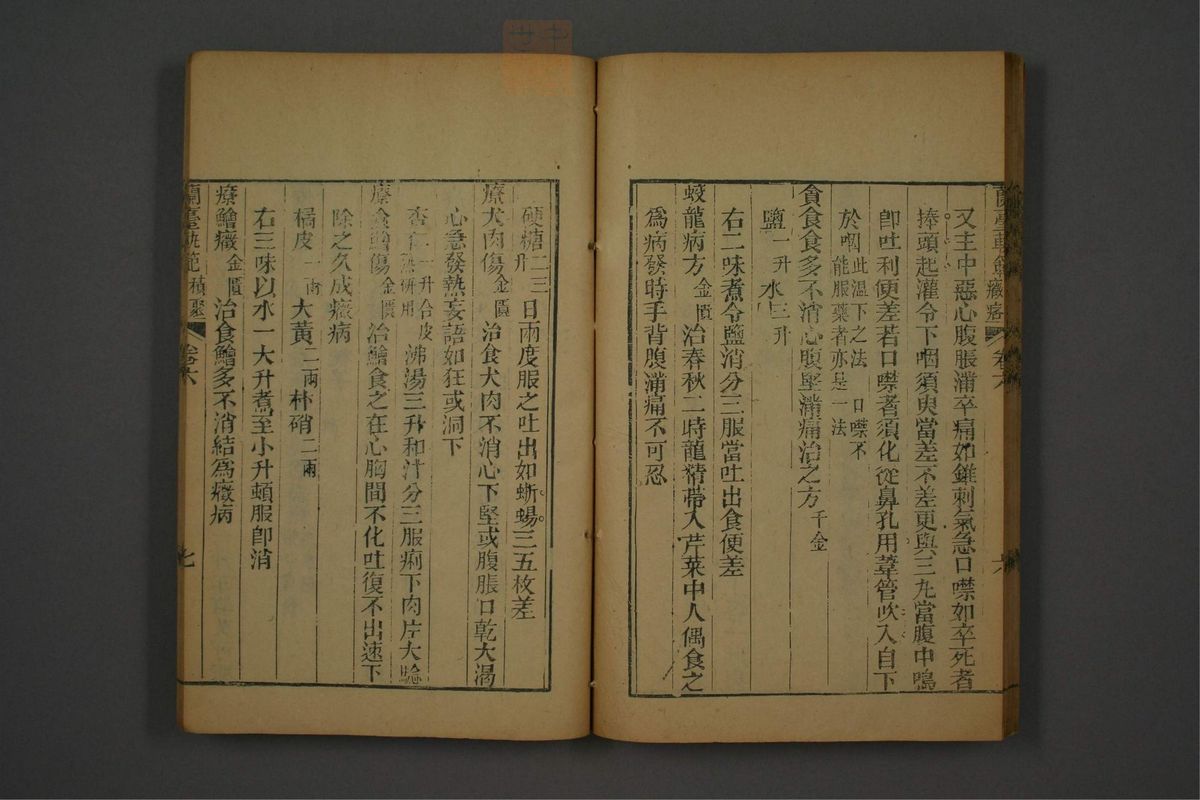 蘭臺軌範 癥瘕 卷六 六
又主中惡心腹脹滿卒痛如錐刺氣急口噤如卒死者
捧頭起灌令下咽須臾當差不差更與三丸當腹中鳴
卽吐利便差若口噤者須化從鼻孔用葦管吹入自下
於咽此溫下之法口噤不
能服藥者亦是一法
貪食食多不消心腹堅滿痛治之方千金
鹽一升水三升
右二味煮令鹽消分三服當吐出食便差
蛟龍病方金匱治春秋二時龍精帶入芹菜中人偶食之
爲病發時手背腹滿痛不可忍
硬糖二三升日兩度服之吐出如蜥蜴三五枚差
療犬肉傷金匱治食犬肉不消心下堅或腹脹口乾大渴
心急發熱妄語如狂或洞下
杏仁一升合皮熟研用沸湯三升和汁分三服利下肉片大驗
療食鱠傷金匱治鱠食之在心胸間不化吐復不出速下
除之久成癥病
橘皮一兩大黃二兩朴硝二兩
右三味以水一大升煮至小升頓服卽消
療鱠癥金匱治食鱠多不消結爲癥病
蘭臺軌範 積聚 卷六 七